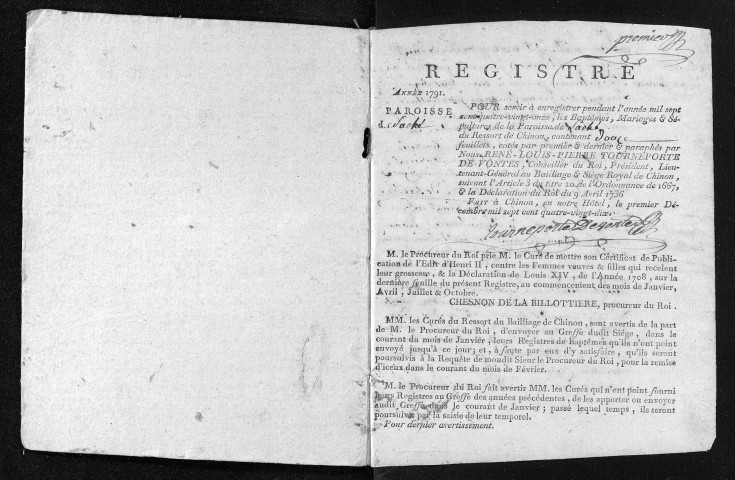 premier
REGISTRE
ANNÉE 1791.
PAROISSE
de Saché
POUR servir à enregistrer pendant l'année mil sept
cent quatre-vingt-onze, les Baptêmes, Mariages & Sé-
pultures de la Paroisse de Saché
du Ressort de Chinon, contenant douze
feuillets, cotés par premier & dernier & paraphés par
Nous RENÉ-LOUIS-PIERRE TOURNEPORTE
DE VONTES, Conseiller du Roi, Président, Lieu-
tenant-Général au Bailliage & Siége Royal de Chinon,
suivant l'Article 3 du titre 20 de l'Ordonnance de 1667,
& la Déclaration du Roi du 9 Avril 1736
Fait à Chinon, en notre Hôtel, le premier Dé-
cembre mil sept cent quatre-vingt-dix.
Tourneporte Devontes
M. le Procureur du Roi prie M. le Curé de mettre son Certificat de Publi-
cation de l'Edit d'Henri II, contre les Femmes veuves & filles qui recelent
leur grossesse, & la Déclaration de Louis XIV, de l'Année 1708, sur la
derniére feuille du présent Registre, au commencement des mois de Janvier,
Avril, Juillet & Octobre.
CHESNON DE LA BILLOTTIERE, procureur du Roi.
MM. les Curés du Ressort du Bailliage de Chinon, sont avertis de la part
de M. le Procureur du Roi, d'envoyer au Greffe dudit Siége, dans le
courant du mois de Janvier, leurs Registres de Baptêmes qu'ils n'ont point
envoyé jusqu'à ce jour; et, à faute par eux d'y satisfaire, qu'ils seront
poursuivis à la Requête de mondit Sieur le Procureur du Roi, pour la remise
d'iceux dans le courant du mois de Février.
M. le Procureur du Roi fait avertir MM. les Curés qui n'ent point fourni
leurs Registres au Greffe des années précédentes, de les apporter ou envoyer
audit Greffe dans le courant de Janvier; passé lequel temps, ils seront
poursuivis par la saisie de leur temporel.
Pour dernier avertissement.